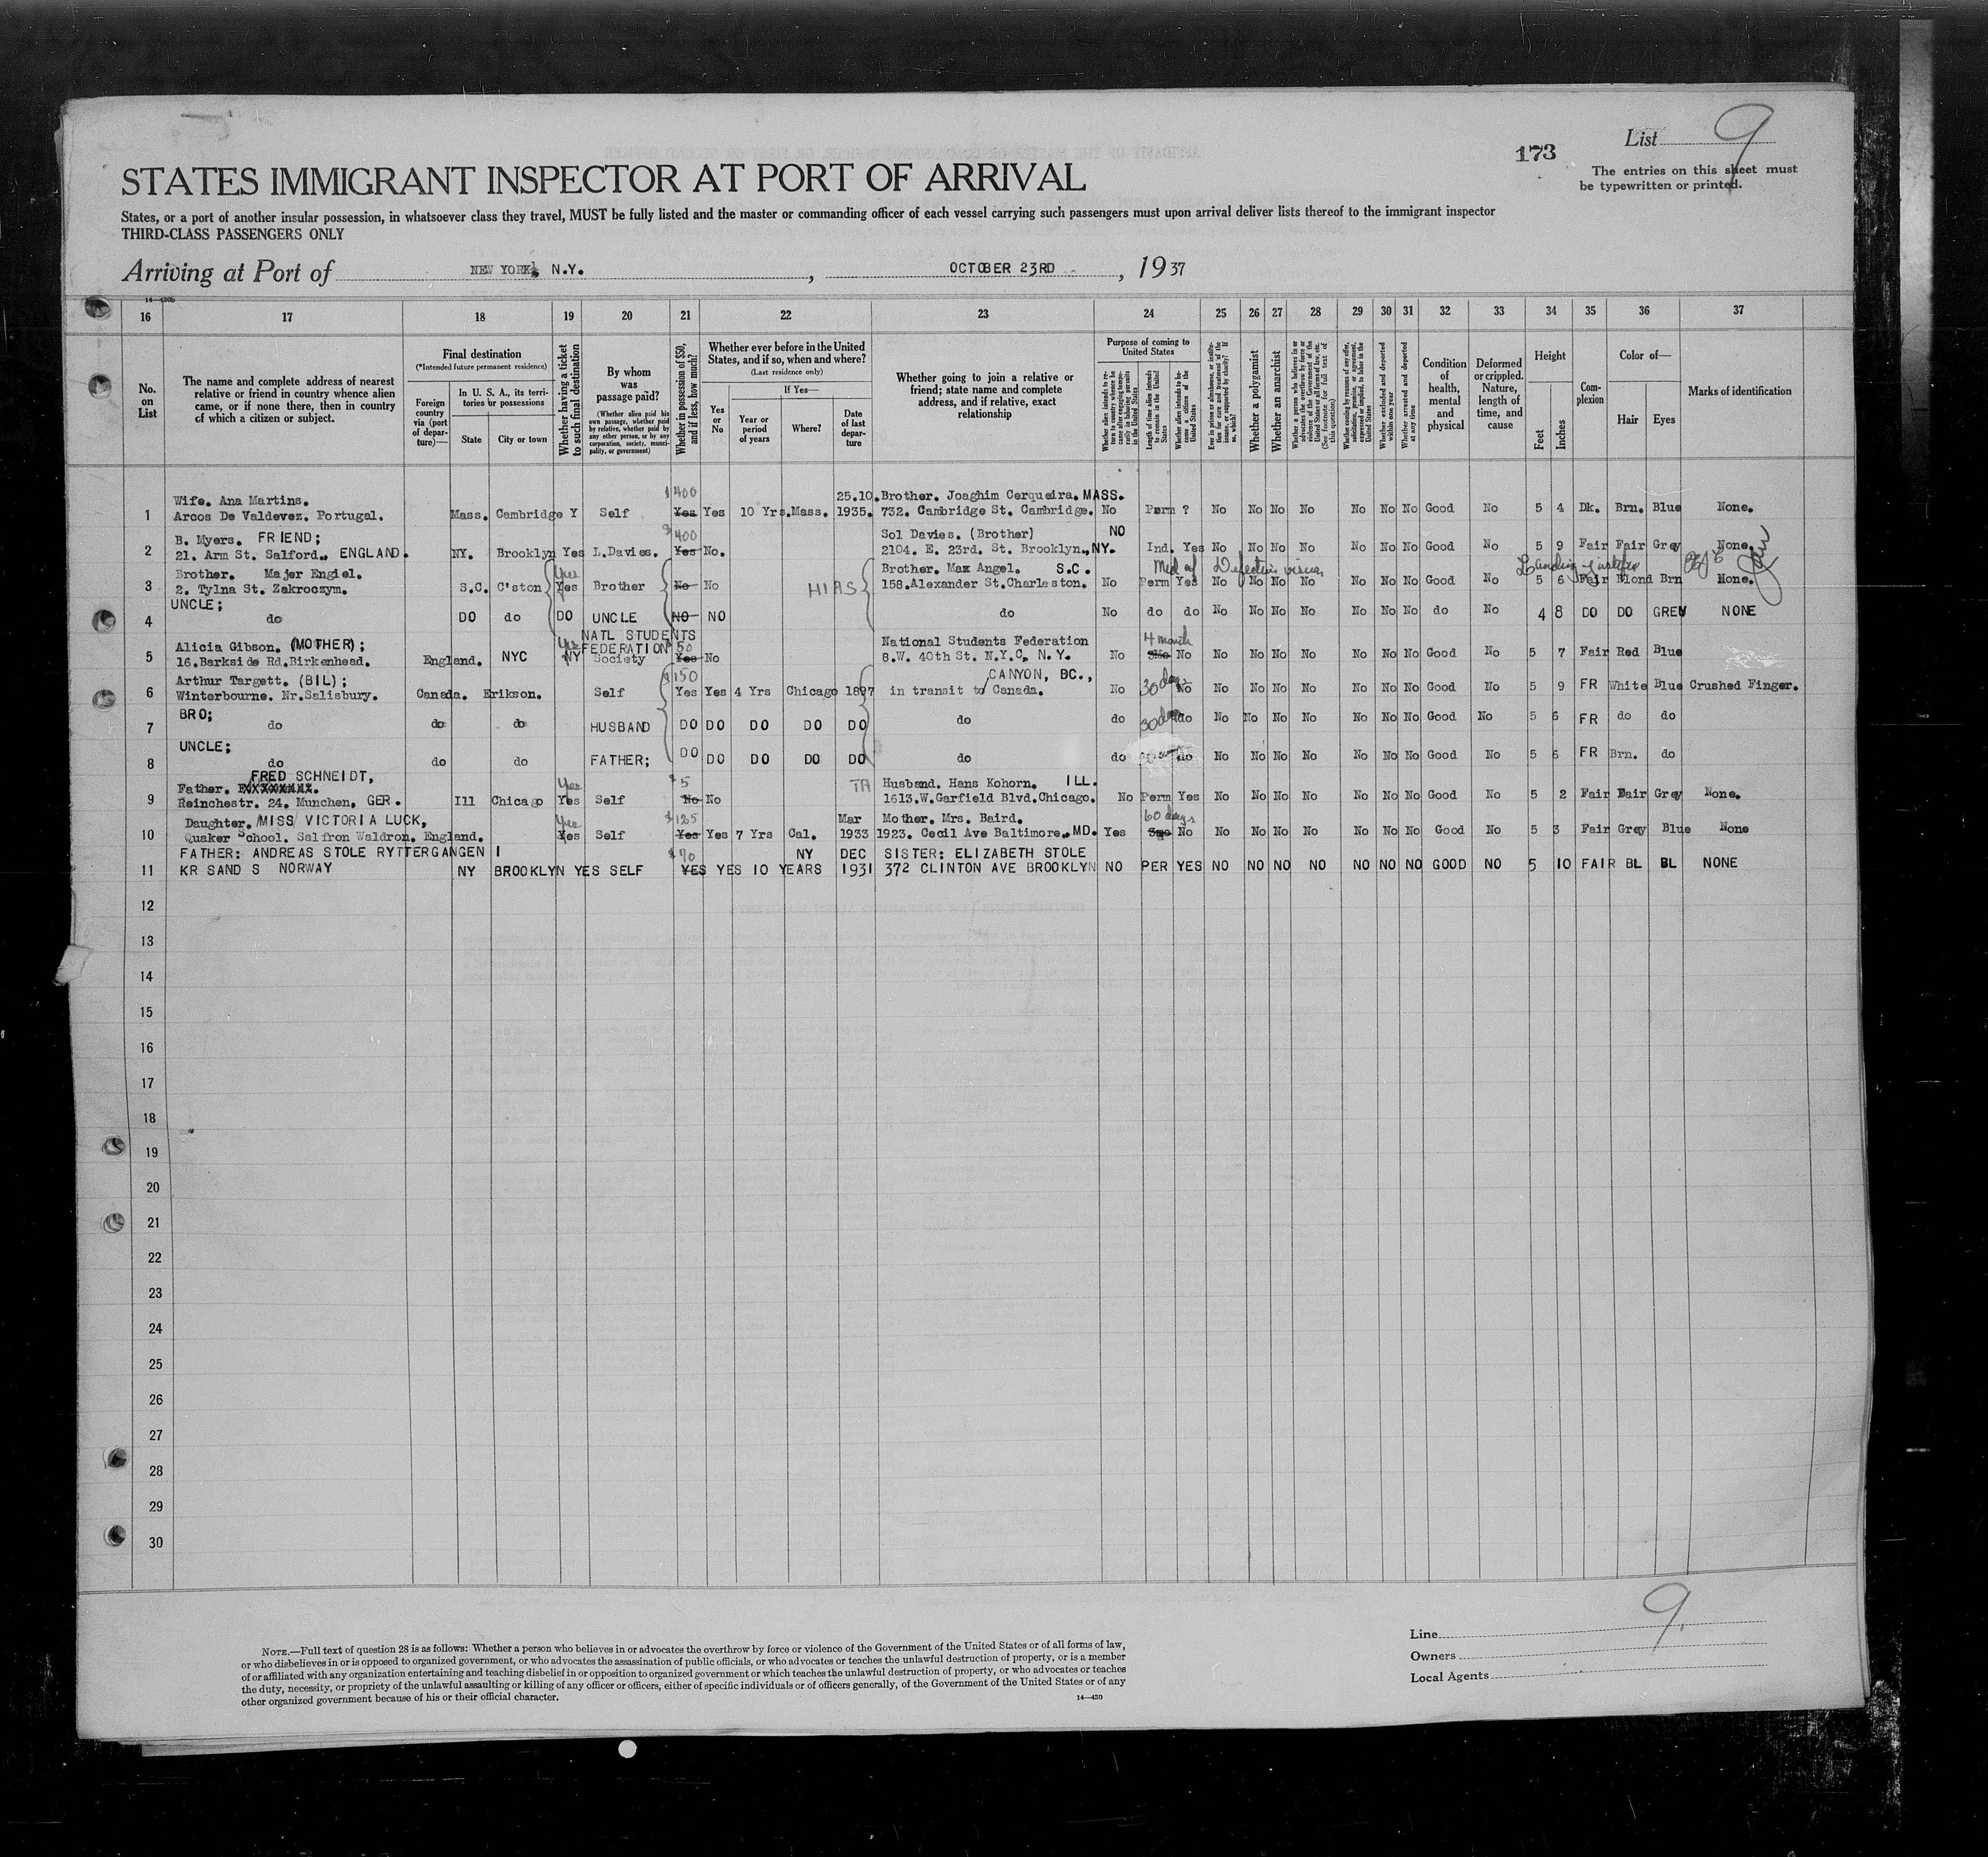 List 9
173
The entries on this sheet must
be typewritten or printed.
STATES IMMIGRANT INSPECTOR AT PORT OF ARRIVAL
States, or a port of another insular possession, in whatsoever class they travel, MUST be fully listed and the master or commanding officer of each vessel carrying such passengers must upon arrival deliver lists thereof to the immigrant inspector
THIRD-CLASS PASSENGERS ONLY
Arriving at Port of NEW YORK, N.Y. , OCTOBER 23RD , 1937
14—430b
16 17 18 19 20 21 22 23 24 25 26 27 28 29 30 31 32 33 34 35 36 37
No. on List
The name and complete address of nearest relative or friend in country whence alien came, or if none there, then in country of which a citizen or subject.
Final destination
(*Intended future permanent residence)
Foreign country via (port of departure)—
In U. S. A., its territories or possessions
State
City or town
Whether having a ticket to such final destination
By whom was passage paid?
(Whether alien paid his own passage, whether paid by relative, whether paid by any other person, or by any corporation, society, municipality, or government)
Whether in possession of $50, and if less, how much?
Whether ever before in the United States, and if so, when and where?
(Last residence only)
Yes or No
If Yes—
Year or period of years
Where?
Date of last departure
Whether going to join a relative or friend; state name and complete address, and if relative, exact relationship
Purpose of coming to United States
Whether alien intends to return to country whence he came after engaging temporarily in laboring pursuits in the United States
Length of time alien intends to remain in the United States
Whether alien intends to become a citizen of the United States
Ever in prison or almshouse, or institution for care and treatment of the insane, or supported by charity? If so, which?
Whether a polygamist
Whether an anarchist
Whether a person who believes in or advocates the overthrow by force or violence of the Government of the United States or all forms of law, etc. (See footnote for full text of this question)
Whether coming by reason of any offer, solicitation, promise, or agreement, expressed or implied, to labor in the United States
Whether excluded and deported within one year
Whether arrested and deported at any time
Condition of health, mental and physical
Deformed or crippled. Nature, length of time, and cause
Height
Feet
Inches
Complexion
Color of—
Hair
Eyes
Marks of identification
$400 25.10.
Wife. Ana Martins. Brother. Joaghim Cerqueira. MASS.
1 Arcos De Valdevez. Portugal. Mass. Cambridge Y Self Yes Yes 10 Yrs. Mass. 1935. 732. Cambridge St. Cambridge. No Perm ? No No No No No No No Good No 5 4 Dk. Brn. Blue None.
B. Myers. FRIEND; $400 Sol Davies. (Brother) NO
2 21. Arm St. Salford., ENGLAND. NY. Brooklyn Yes L.Davies. Yes No. 2104. E. 23rd. St. Brooklyn., NY. Ind. Yes No No No No No No No Good No 5 9 Fair Fair Grey None.
Brother. Majer Engiel. Yes HIAS Brother. Max Angel. S.C. Defective vision
3 2. Tylna St. Zakroczym. S.C. C'ston Yes Brother No No 158.Alexander St.Charleston. No Perm Yes No No No No No No No Good No 5 6 Fair Blond Brn None.
UNCLE;
4 do DO do DO UNCLE NO NO do No do do No No No No No No No do No 4 8 DO DO GREY NONE
Alicia Gibson. (MOTHER); Yes NATL STUDENTS FEDERATION $50 National Students Federation 4 month
5 16.Barkside Rd.Birkenhead. England. NYC NY Society Yes No 8.W. 40th St. N.Y.C, N.Y. No No No No No No No No No Good No 5 7 Fair Red Blue
Arthur Targett. (BIL); $150 CANYON, BC.,
6 Winterbourne. Nr.Salisbury. Canada. Erikson. Self Yes Yes 4 Yrs Chicago 1897 in transit to Canada. No 30 days No No No No No No No No Good No 5 9 FR White Blue Crushed Finger.
BRO;
7 do do do HUSBAND DO DO DO DO DO do do 30 days do No No No No No No No Good No 5 6 FR do do
UNCLE;
8 do do do FATHER; DO DO DO DO DO do do do No No No No No No No Good No 5 6 FR Brn. do
FRED SCHNEIDT,
Father. XXXXXXXX. Yes $5 TA Husband. Hans Kohorn. ILL.
9 Reinchestr. 24. Munchen. GER. Ill Chicago Yes Self No No 1613.W.Garfield Blvd.Chicago. No Perm Yes No No No No No No No Good No 5 2 Fair Fair Grey None.
Daughter. MISS VICTORIA LUCK, Yes $125 Mar Mother. Mrs. Baird. 60 days
10 Quaker School. Salfron Waldron. England. Yes Self Yes Yes 7 Yrs Cal. 1933 1923. Cecil Ave Baltimore., MD. Yes 3mo No No No No No No No No Good No 5 3 Fair Grey Blue None
FATHER: ANDREAS STOLE RYTTERGANGEN I $70 NY DEC SISTER: ELIZABETH STOLE
11 KR SAND S NORWAY NY BROOKLYN YES SELF YES YES 10 YEARS 1931 372 CLINTON AVE BROOKLYN NO PER YES NO NO NO NO NO NO NO GOOD NO 5 10 FAIR BL BL NONE
12
13
14
15
16
17
18
19
20
21
22
23
24
25
26
27
28
29
30
NOTE.—Full text of question 28 is as follows: Whether a person who believes in or advocates the overthrow by force or violence of the Government of the United States or of all forms of law,
or who disbelieves in or is opposed to organized government, or who advocates the assassination of public officials, or who advocates or teaches the unlawful destruction of property, or is a member
of or affiliated with any organization entertaining and teaching disbelief in or opposition to organized government or which teaches the unlawful destruction of property, or who advocates or teaches
the duty, necessity, or propriety of the unlawful assaulting or killing of any officer or officers, either of specific individuals or of officers generally, of the Government of the United States or of any
other organized government because of his or their official character.
14—430
9.
Line
Owners
Local Agents